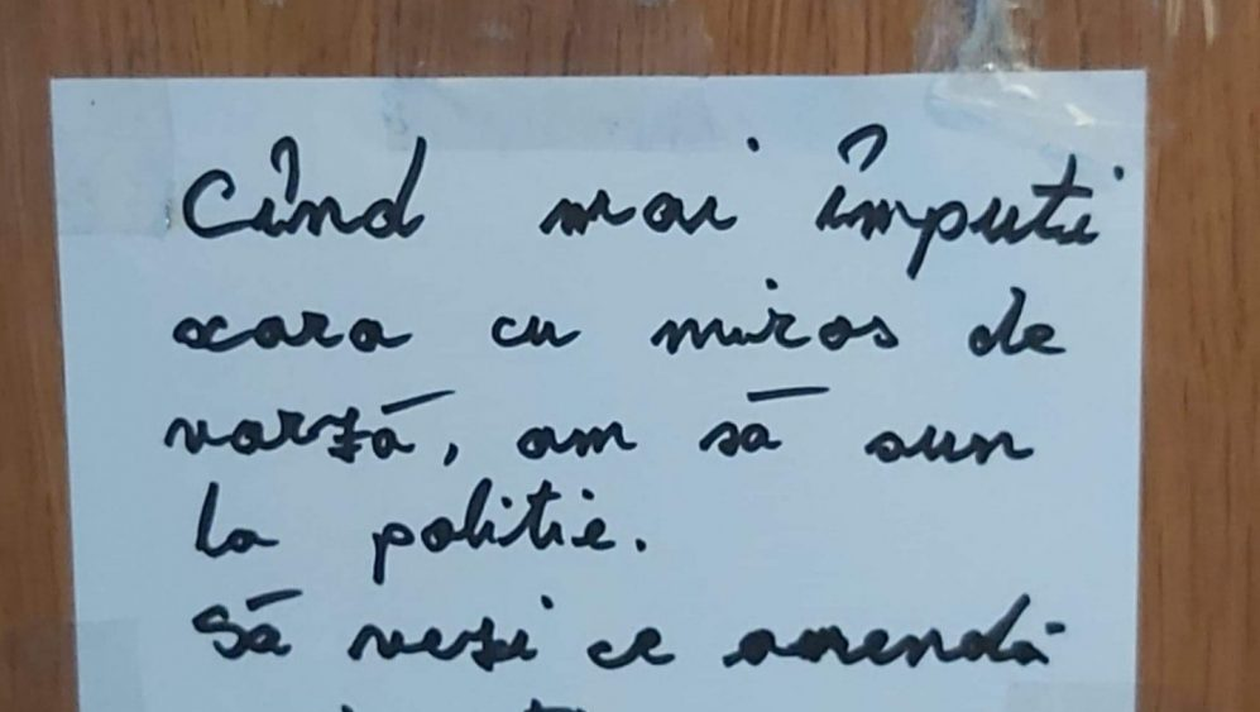 Cînd mai împuti
scara cu miros de
varză, am să sun
la politie.
Să vezi ce amendă